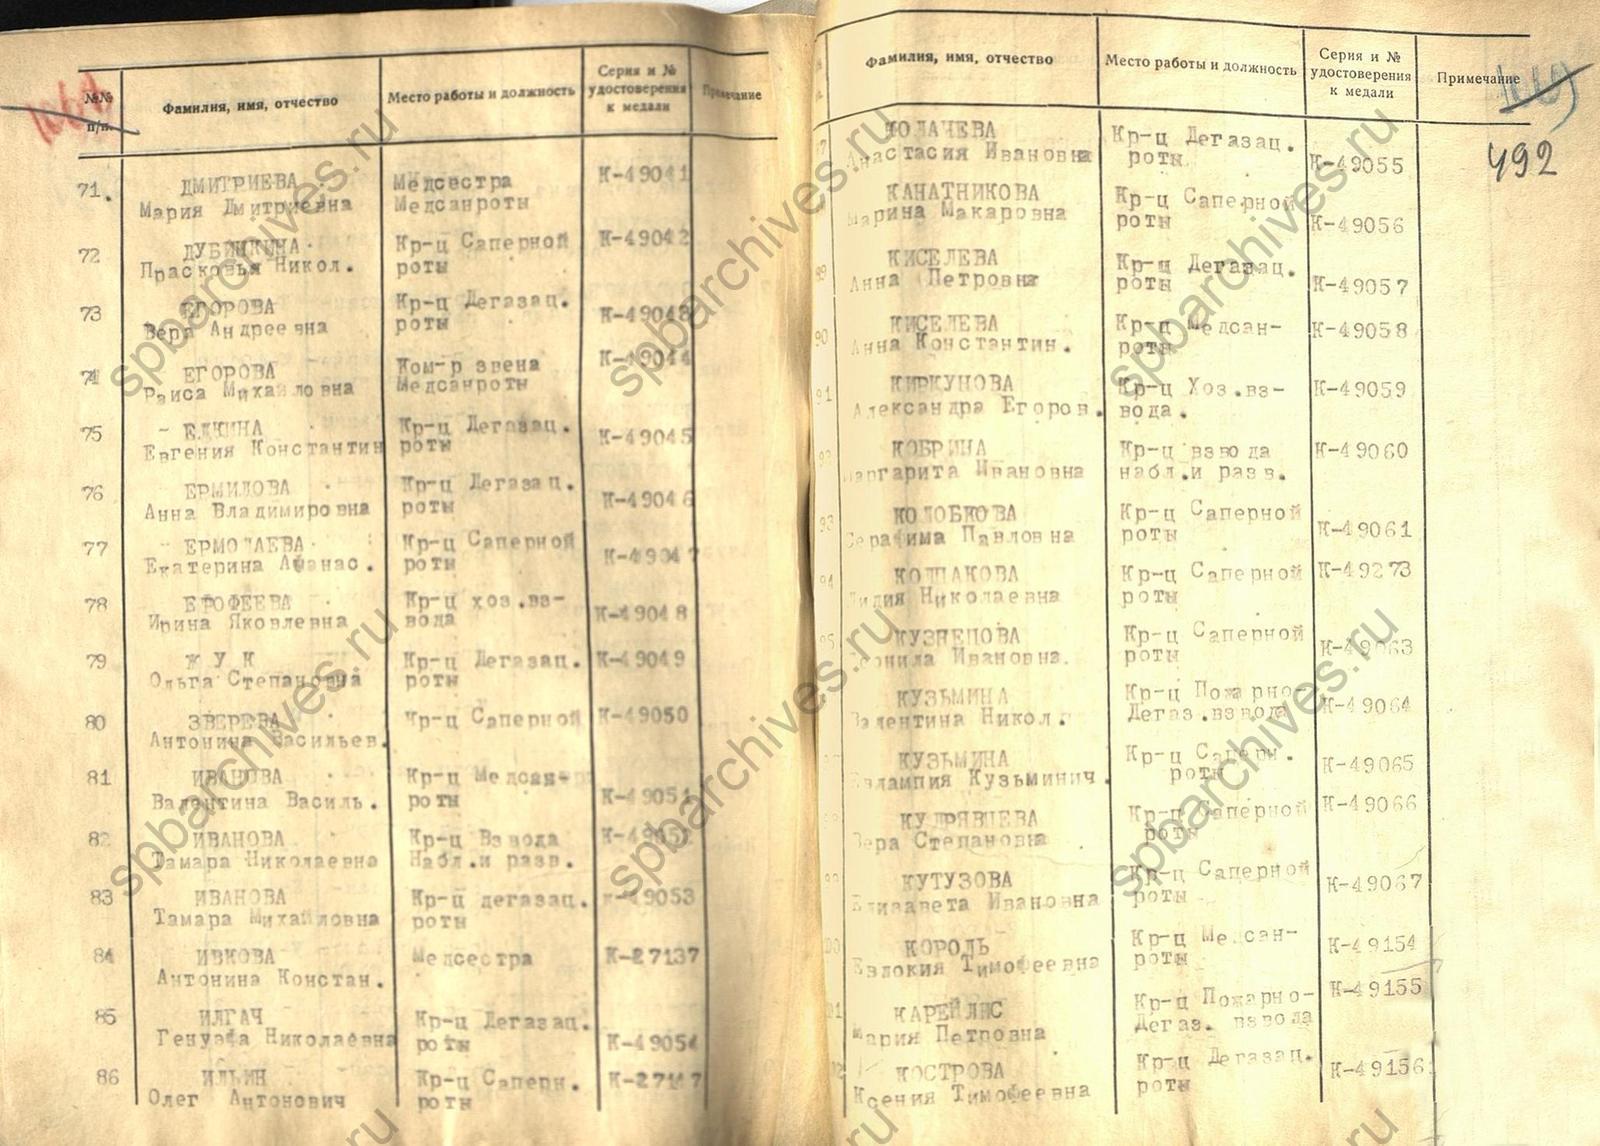 №№ п/п.
Фамилия, имя, отчество
Место работы и должность
Серия и № удостоверения к медали
Примечание
71. ДМИТРИЕВА Медсестра К-49041
Мария Дмитриевна Медсанроты
72 ДУБИНКИНА Кр-ц Саперной К-49042
Прасковья Никол. роты
73 ЕГОРОВА Кр-ц Дегазац. К-49043
Вера Андреевна роты
74 ЕГОРОВА Ком-р звена К-49044
Раиса Михайловна Медсанроты
75 ЕЛКИНА Кр-ц Дегазац. К-49045
Евгения Константин роты
76 ЕРМИЛОВА Кр-ц Дегазац. К-49046
Анна Владимировна роты
77 ЕРМОЛАЕВА Кр-ц Саперной К-49047
Екатерина Афанас. роты
78 ЕРОФЕЕВА Кр-ц хоз.вз- К-49048
Ирина Яковлевна вода
79 Ж У К Кр-ц Дегазац. К-49049
Ольга Степановна роты
80 ЗВЕРЕВА Кр-ц Саперной К-49050
Антонина Васильев.
81 ИВАНОВА Кр-ц Медсан-
Валентина Василь. роты К-49051
82 ИВАНОВА Кр-ц Взвода
Тамара Николаевна Набл.и разв.
83 ИВАНОВА Кр-ц дегазац. К-49053
Тамара Михайловна роты
84 ИВКОВА Медсестра К-27137
Антонина Констан.
85 ИЛГАЧ Кр-ц Дегазац.
Генуэфа Николаевна роты К-49054
86 ИЛЬИН Кр-ц Саперн.
Олег Антонович роты
Фамилия, имя, отчество
Место работы и должность
Серия и № удостоверения к медали
Примечание
492
КОЛАЧЕВА Кр-ц Дегазац.
Анастасия Ивановна роты К-49055
КАНАТНИКОВА Кр-ц Саперной
Марина Макаровна роты К-49056
КИСЕЛЕВА Кр-ц Дегазац.
Анна Петровна роты К-49057
90 КИСЕЛЕВА Кр-ц Медсан- К-49058
Анна Константин. роты
91 КИРКУНОВА Кр-ц Хоз.вз- К-49059
Александра Егоров. вода.
КОБРИНА Кр-ц взвода К-49060
Маргарита Ивановна набл.и разв.
93 КОЛОБКОВА Кр-ц Саперной К-49061
Серафима Павловна роты
94 КОЛПАКОВА Кр-ц Саперной К-49273
Лидия Николаевна роты
95 КУЗНЕЦОВА Кр-ц Саперной К-49063
Ивановна. роты
КУЗЬМИНА Кр-ц Пожарно- К-49064
Валентина Никол. Дегаз.взвода
КУЗЬМИНА Кр-ц Саперн. К-49065
Евлампия Кузьминич. роты
КУДРЯВЦЕВА Кр-ц Саперной К-49066
Вера Степановна роты
КУТУЗОВА Кр-ц Саперной К-49067
Елизавета Ивановна роты
КОРОЛЬ Кр-ц Медсан- К-49154
Евдокия Тимофеевна роты
КАРЕЙЛИС Кр-ц Пожарно- К-49155
Мария Петровна Дегаз. взвода
КОСТРОВА Кр-ц Дегазац. К-49156
Ксения Тимофеевна роты
spbarchives.ru